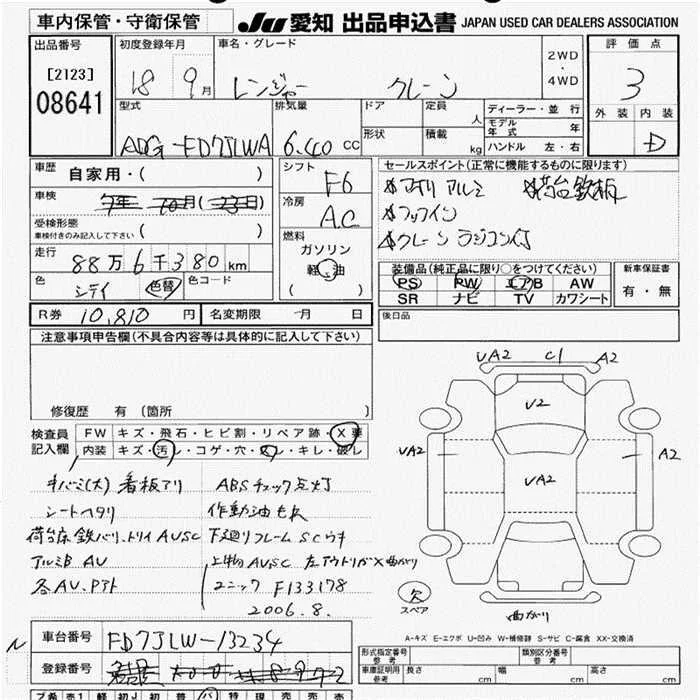 車内保管・守衛保管
JU 愛知 出品申込書 JAPAN USED CAR DEALERS ASSOCIATION
出品番号
[2123]
08641
初度登録年月
18 9月
車名・グレード
レンジャー クレーン
2WD
・
4WD
評価点
3
外装 内装
D
型式
ADG-FD7JLWA
排気量
6.40 CC
ドア
形状
定員 人
積載 kg
ディーラー・並行
モデル年式 年
ハンドル 左・右
車歴 自家用・( )
車検
受検形態
車検付きのみ記入して下さい ( )
走行 88万6千380km
色 シティ 色替 色コード
シフト F6
冷房 A.C
燃料
ガソリン
軽油
( )
セールスポイント(正常に機能するものに限ります)
アオリ アルミ 荷台鉄板
フックイン
クレーン ラジコン付
装備品(純正品に限り○をつけてください)
PS PW エアB AW
SR ナビ TV カワシート
新車保証書
有・無
R券 10,810円
名変期限 -月 日
後日品
注意事項申告欄(不具合内容等は具体的に記入して下さい)
修復歴 有(箇所 )
検査員記入欄
FW キズ・飛石・ヒビ割・リペア跡・X要
内装 キズ・汚レ・コゲ・穴・スレ・キレ・破レ
キバミ(大) 看板アリ ABSチェック点灯
シートヘタリ 作動油モレ
荷台床鉄バリ、トリイAUSC 下廻りフレームSCウキ
アルミB AU 上物AUSC 左アウトリガX曲がり
各AU、Pアト ユニック F133178
2006.8.
UA2 C1 A2
U2
UA2 UA2 A2
欠
スペア
曲がり
A-キズ E-エクボ U-凹み W-補修跡 S-サビ C-腐食 XX-交換済
車台番号 FD7JLW-13234
登録番号
形式指定番号
参考
類別区分番号
参考
車庫証明用
参考
長さ cm 幅 cm 高さ cm